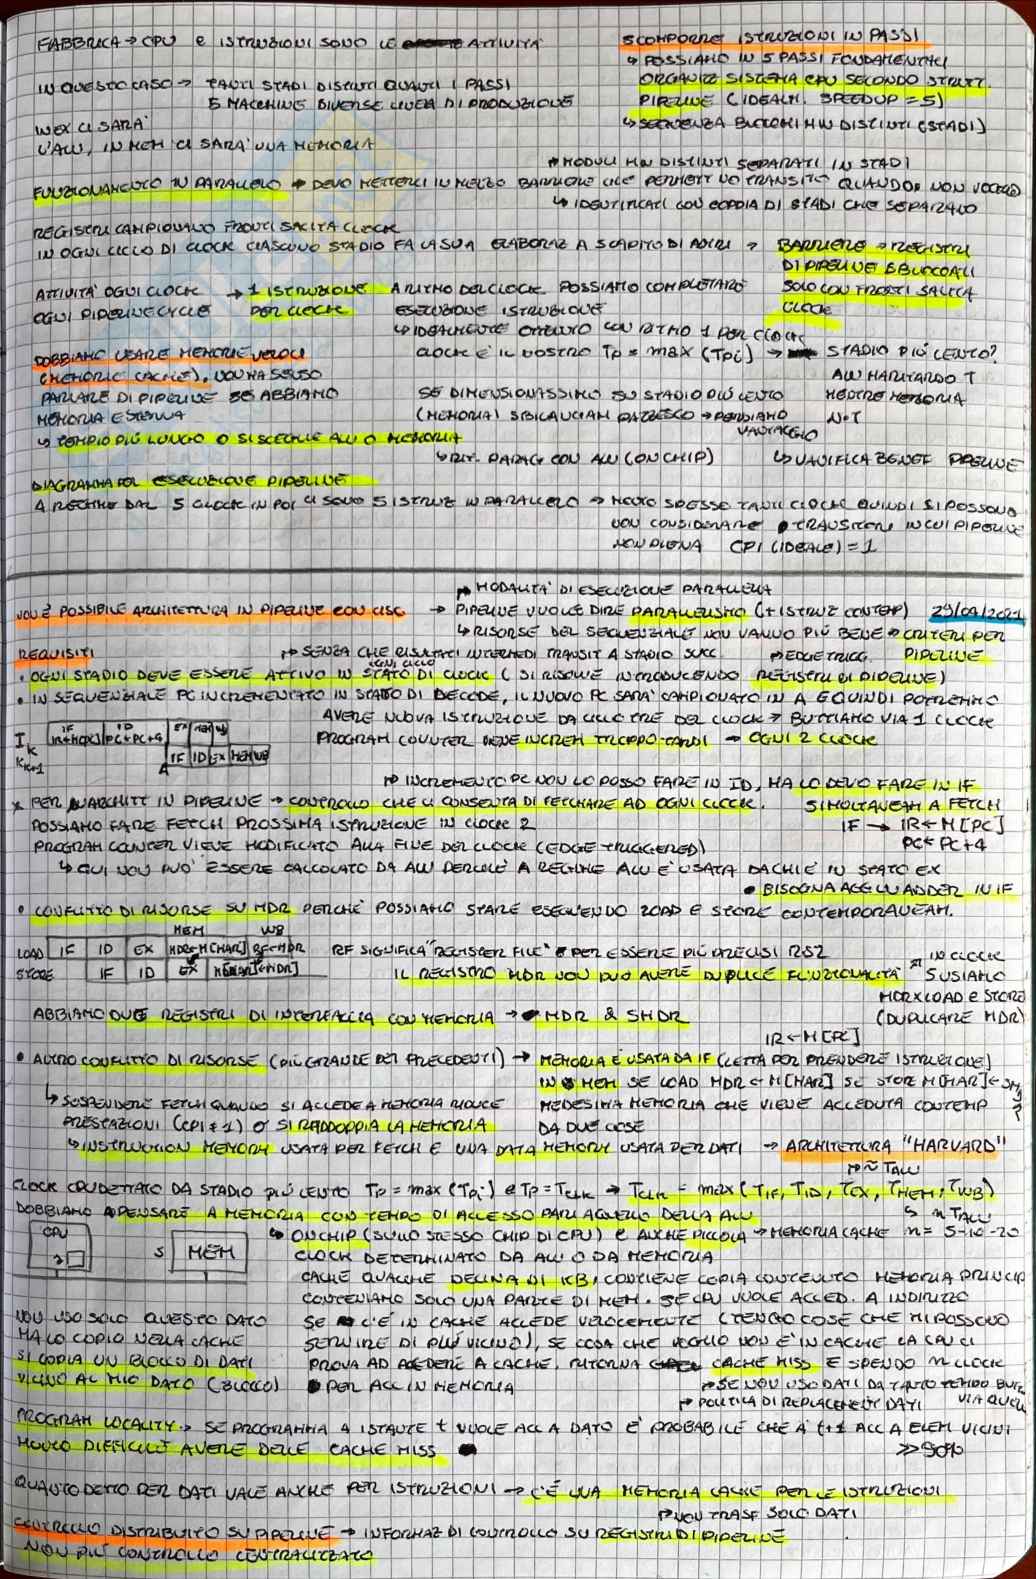 FABBRICA → CPU E ISTRUZIONI SONO LE ATTIVITÀ
IN QUESTO CASO → TANTI STADI DISTINTI QUANTI I PASSI
5 MACCHINE DIVERSE LINEA DI PRODUZIONE
IN EX CI SARÀ
L'ALU, IN MEM CI SARÀ UNA MEMORIA
SCOMPORRE ISTRUZIONI IN PASSI
↳ POSSIAMO IN 5 PASSI FONDAMENTALI
ORGANIZ SISTEMA CPU SECONDO STRUTT.
PIPELINE (IDEALM. SPEEDUP = 5)
↳ SEQUENZA BLOCCHI HW DISTINTI (STADI)
↱ MODULI HW DISTINTI SEPARATI IN STADI
FUNZIONAMENTO IN PARALLELO → DEVO METTERCI IN MEZZO BARRIERE CHE PERMETT NO TRANSITO QUANDO NON VOGLIO
↳ IDENTIFICATI CON COPPIA DI STADI CHE SEPARANO
REGISTRI CAMPIONANO FRONTI SALITA CLOCK
IN OGNI CICLO DI CLOCK CIASCUNO STADIO FA LA SUA ELABORAZ A SCAPITO DI ALTRI → BARRIERE → REGISTRI
DI PIPELINE SBLOCCATI
SOLO CON FRONTI SALITA
CLOCK
ATTIVITÀ OGNI CLOCK → 1 ISTRUZIONE A RITMO DEL CLOCK POSSIAMO COMPLETARE
OGNI PIPELINE CYCLE PER CLOCK ESECUZIONE ISTRUZIONE
↳ IDEALMENTE OTTENUTO CON RITMO 1 PER CLOCK
DOBBIAMO USARE MEMORIE VELOCI CLOCK È IL NOSTRO Tp = max (Tpi) → STADIO PIÙ LENTO?
(MEMORIE CACHE), NON HA SENSO ALU HA RITARDO T
PARLARE DI PIPELINE SE ABBIAMO SE DIMENSIONASSIMO SU STADIO PIÙ LENTO MENTRE MEMORIA
MEMORIA ESTERNA (MEMORIA) SBILANCIAM PAZZESCO → PERDIAMO N·T
VANTAGGIO
↳ TEMPIO PIÙ LUNGO O SI SCEGLIE ALU O MEMORIA
↳ RIT. PARAG CON ALU (ON CHIP) ↳ VANIFICA BENEF PIPELINE
DIAGRAMMA PER ESECUZIONE PIPELINE
A REGIME DAL 5 CLOCK IN POI CI SONO 5 ISTRUZ IN PARALLELO → MOLTO SPESSO TANTI CLOCK QUINDI SI POSSONO
NON CONSIDERARE TRANSITORI IN CUI PIPELINE
NON PIENA CPI (IDEALE) = 1
↱ MODALITÀ DI ESECUZIONE PARALLELA
NON È POSSIBILE ARCHITETTURA IN PIPELINE CON CISC → PIPELINE VUOLE DIRE PARALLELISMO (+ ISTRUZ CONTEMP) 29/04/2021
↳ RISORSE DEL SEQUENZIALE NON VANNO PIÙ BENE → CRITERI PER
PIPELINE
REQUISITI ↱ SENZA CHE RISULTATI INTERMEDI TRANSIT A STADIO SUCC. ↱ EDGE TRIGG.
OGNI CICLO
• OGNI STADIO DEVE ESSERE ATTIVO IN STATO DI CLOCK (SI RISOLVE INTRODUCENDO REGISTRI DI PIPELINE)
• IN SEQUENZIALE PC INCREMENTATO IN STATO DI DECODE, IL NUOVO PC SARÀ CAMPIONATO IN A E QUINDI POTREMMO
AVERE NUOVA ISTRUZIONE DA CICLO TRE DEL CLOCK → BUTTIAMO VIA 1 CLOCK
PROGRAM COUNTER VIENE INCREM TROPPO TARDI → OGNI 2 CLOCK
IF ID EX MEM WB
IK IR←M[PC] PC←PC+4
K+1 IF ID EX MEM WB
A
↱ INCREMENTO PC NON LO POSSO FARE IN ID, MA LO DEVO FARE IN IF
* PER ARCHITT IN PIPELINE → CONTROLLO CHE CI CONSENTA DI FETCHARE AD OGNI CLOCK. SIMULTANEAM A FETCH
POSSIAMO FARE FETCH PROSSIMA ISTRUZIONE IN CLOCK 2 IF → IR←M[PC]
PROGRAM COUNTER VIENE MODIFICATO ALLA FINE DEL CLOCK (EDGE TRIGGERED) PC←PC+4
↳ QUI NON PUÒ ESSERE CALCOLATO DA ALU PERCHÉ A REGIME ALU È USATA DA CHI È IN STATO EX
• BISOGNA AGG UN ADDER IN IF
• CONFLITTO DI RISORSE SU MDR PERCHÉ POSSIAMO STARE ESEGUENDO LOAD E STORE CONTEMPORANEAM.
MEM WB
LOAD IF ID EX MDR←M[MAR] RF←MDR RF SIGNIFICA "REGISTER FILE" PER ESSERE PIÙ PRECISI RS2
STORE IF ID EX M[MAR]←MDR IL REGISTRO MDR NON PUÒ AVERE DUPLICE FUNZIONALITÀ IN CLOCK
5 USIAMO
MDR X LOAD E STORE
(DUPLICARE MDR)
ABBIAMO DUE REGISTRI DI INTERFACCIA CON MEMORIA → MDR & SMDR
IR←M[PC]
• ALTRO CONFLITTO DI RISORSE (PIÙ GRANDE DEI PRECEDENTI) → MEMORIA È USATA DA IF (LETTA PER PRENDERE ISTRUZIONE)
IN MEM SE LOAD MDR←M[MAR] SE STORE M[MAR]←SMDR
↳ SOSPENDERE FETCH QUANDO SI ACCEDE A MEMORIA RIDUCE MEDESIMA MEMORIA CHE VIENE ACCEDUTA CONTEMP
PRESTAZIONI (CPI ≠ 1) O SI RADDOPPIA LA MEMORIA DA DUE COSE
↳ INSTRUCTION MEMORY USATA PER FETCH E UNA DATA MEMORY USATA PER DATI → ARCHITETTURA "HARVARD"
↱ ≈ TALU
CLOCK CPU DETTATO DA STADIO PIÙ LENTO Tp = max (Tpi) e Tp = TCLK → TCLK = max (TIF, TID, TEX, TMEM, TWB)
DOBBIAMO PENSARE A MEMORIA CON TEMPO DI ACCESSO PARI A QUELLO DELLA ALU ↳ n TALU
↳ ON CHIP (SULLO STESSO CHIP DI CPU) E ANCHE PICCOLA → MEMORIA CACHE n = 5-10-20
CPU S MEM
CLOCK DETERMINATO DA ALU O DA MEMORIA
CACHE QUALCHE DECINA DI KB, CONTIENE COPIA CONTENUTO MEMORIA PRINCIP
CONTENIAMO SOLO UNA PARTE DI MEM. SE CPU VUOLE ACCED. A INDIRIZZO
NON USO SOLO QUESTO DATO SE C'È IN CACHE ACCEDE VELOCEMENTE (TENGO COSE CHE MI POSSONO
MA LO COPIO NELLA CACHE SERVIRE DI PIÙ VICINO), SE COSA CHE VOGLIO NON È IN CACHE LA CPU CI
SI COPIA UN BLOCCO DI DATI PROVA AD ACCEDERE A CACHE, RITORNA CACHE MISS E SPENDO n CLOCK
VICINO AL MIO DATO (BLOCCO) PER ACC IN MEMORIA ↱ SE NON USO DATI DA TANTO TEMPO BUTT
↱ POLITICA DI REPLACEMENT DATI VIA QUELLI
PROGRAM LOCALITY → SE PROGRAMMA A ISTANTE t VUOLE ACC A DATO È PROBABILE CHE A t+1 ACC A ELEM VICINI
MOLTO DIFFICILE AVERE DELLE CACHE MISS >> 90%
QUANTO DETTO PER DATI VALE ANCHE PER ISTRUZIONI → C'È UNA MEMORIA CACHE PER LE ISTRUZIONI
↱ NON TRASF SOLO DATI
CONTROLLO DISTRIBUITO SU PIPELINE → INFORMAZ DI CONTROLLO SU REGISTRI DI PIPELINE
NON PIÙ CONTROLLO CENTRALIZZATO